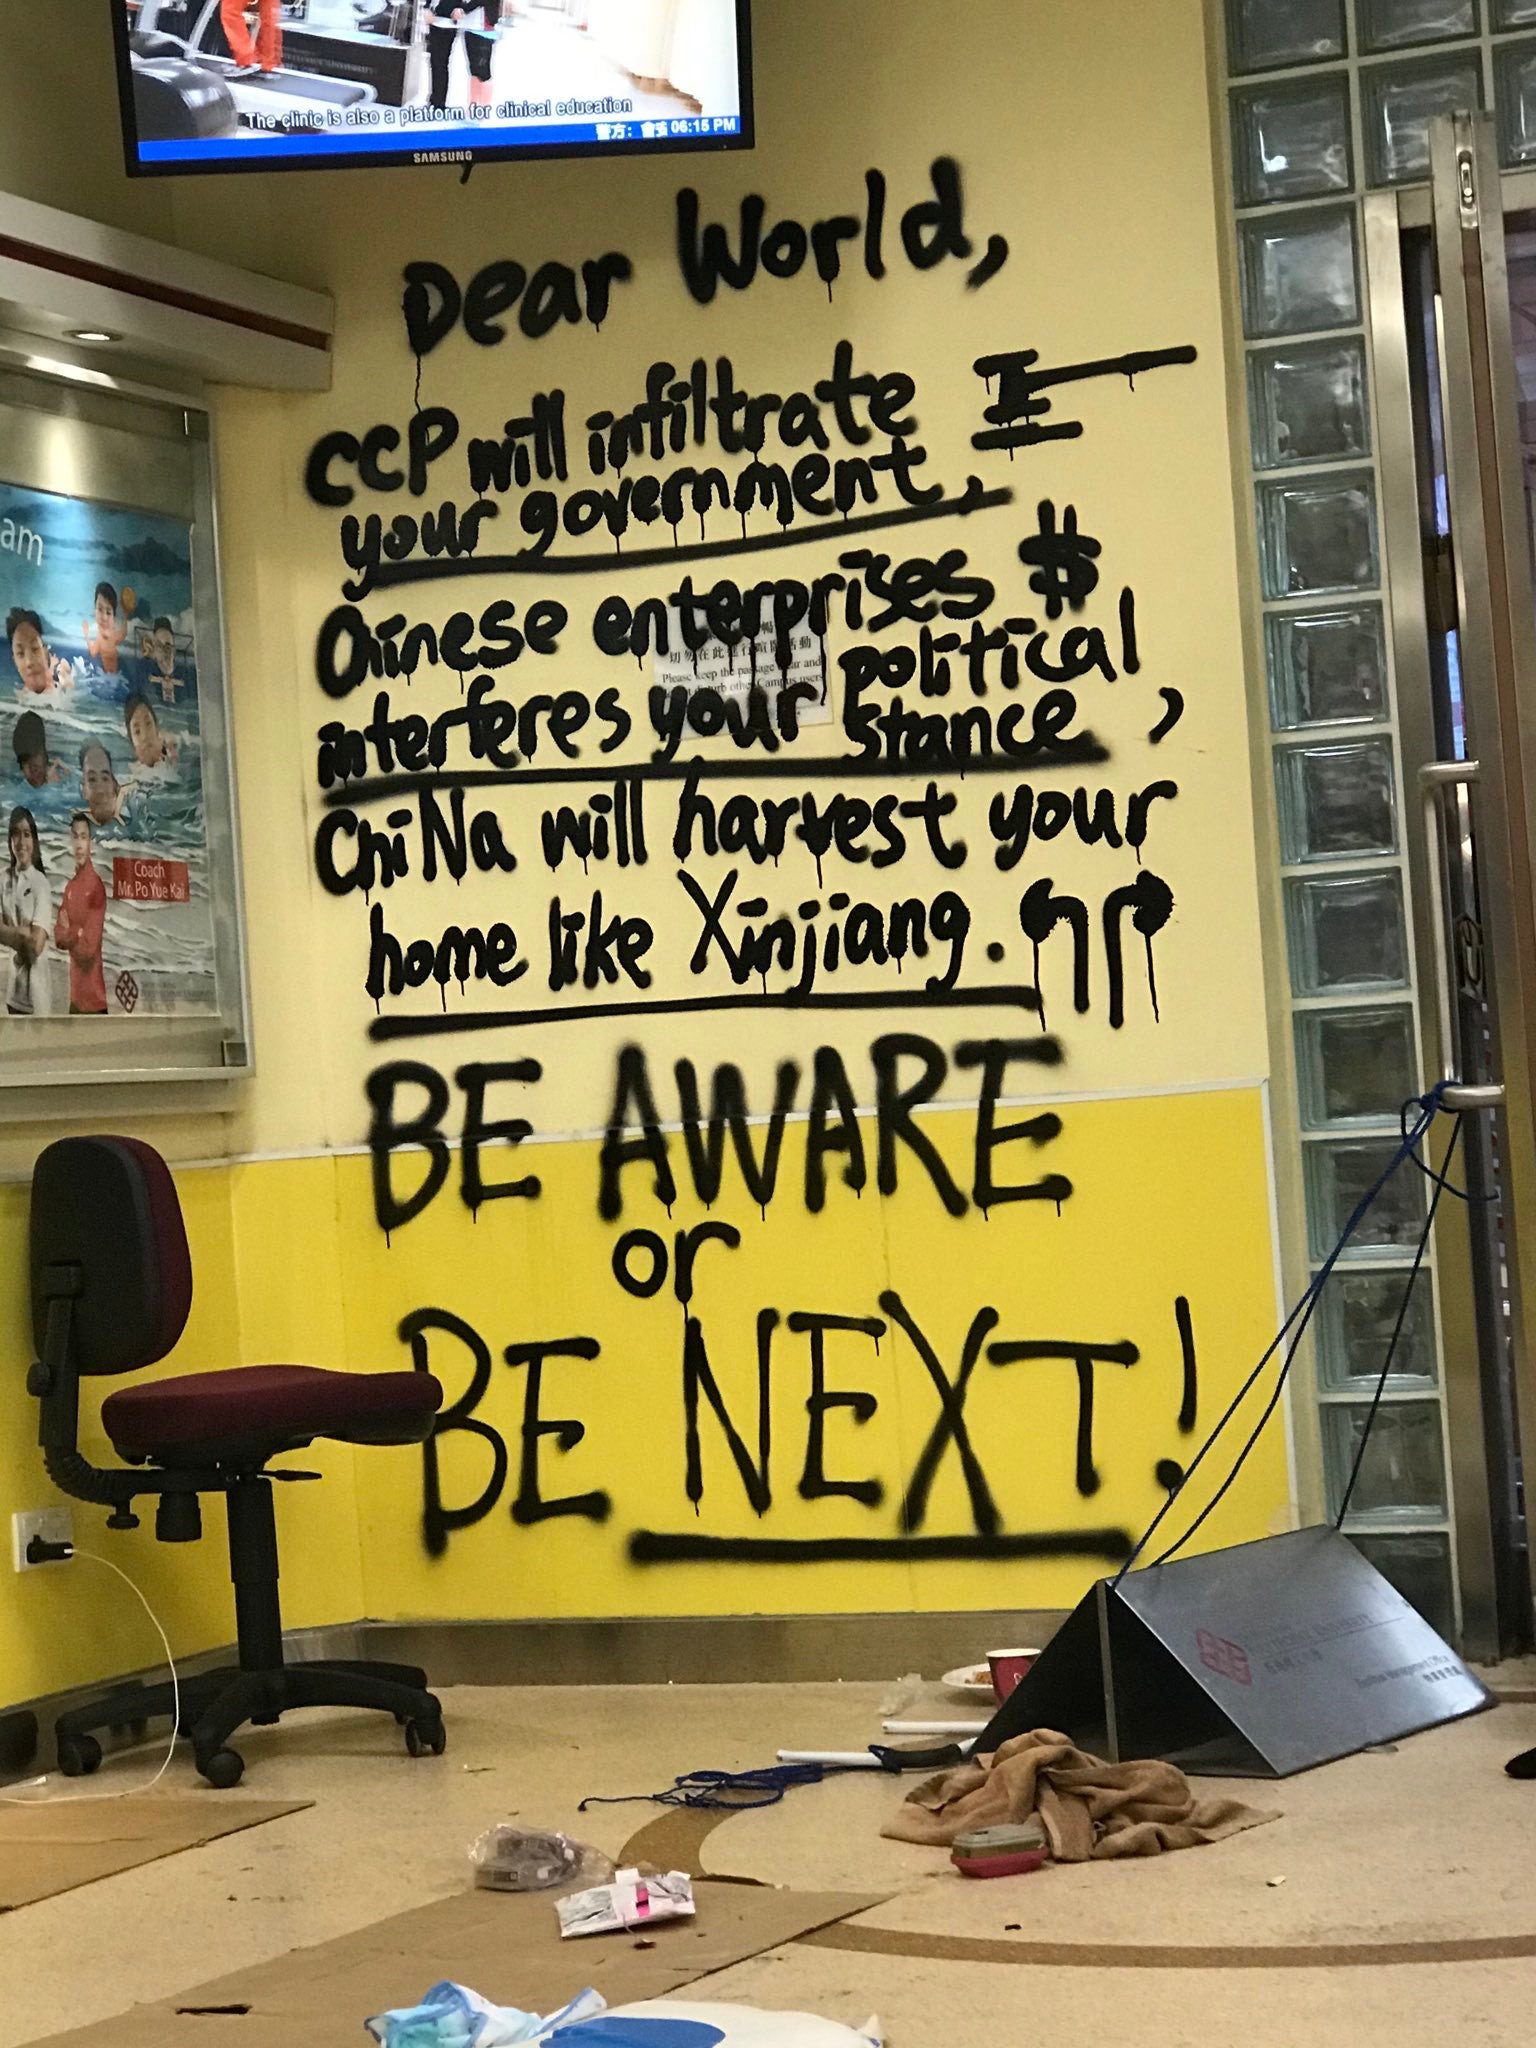 The clinic is also a platform for clinical education
警方： 06:15 PM
SAMSUNG
Dear World,
CCP will infiltrate
your government,
Chinese enterprises $
interferes your political
stance,
ChiNa will harvest your
home like Xinjiang.
BE AWARE
or
BE NEXT!
切勿在此進行喧鬧活動
Please keep the passage and
disturb other Campus users
am
Coach
Mr. Po Yue Kai